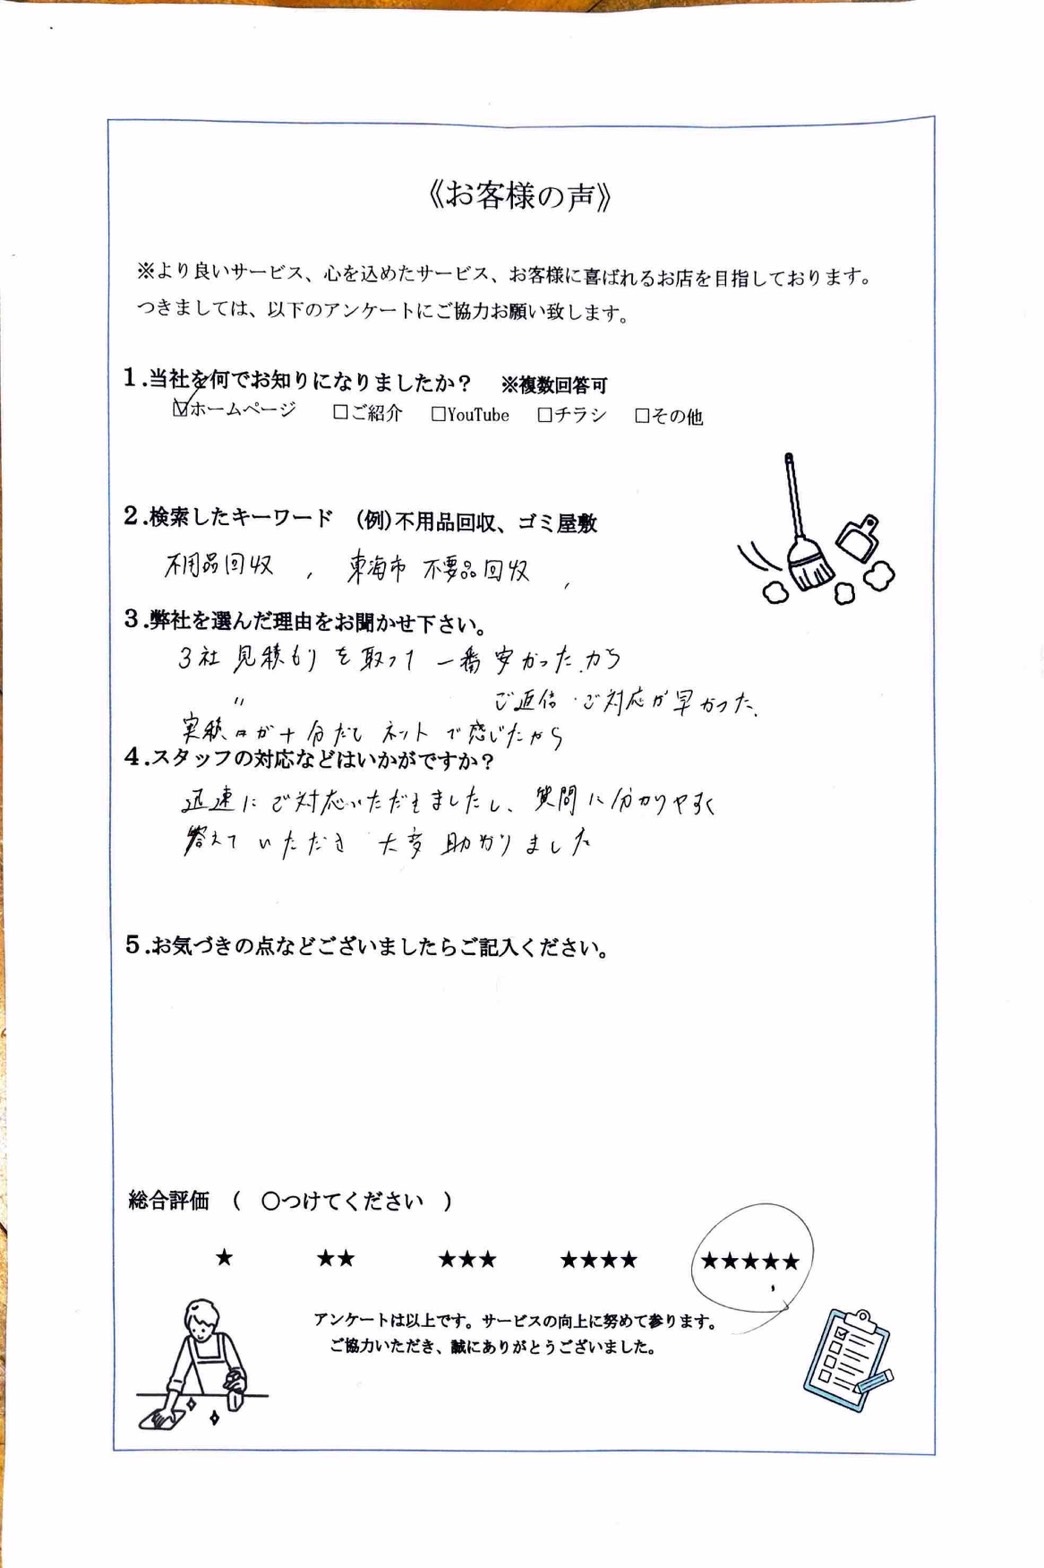 《お客様の声》
※より良いサービス、心を込めたサービス、お客様に喜ばれるお店を目指しております。
つきましては、以下のアンケートにご協力お願い致します。
1.当社を何でお知りになりましたか？ ※複数回答可
☑ホームページ □ご紹介 □YouTube □チラシ □その他
2.検索したキーワード (例)不用品回収、ゴミ屋敷
不用品回収 , 東海市 不要品回収 ,
3.弊社を選んだ理由をお聞かせ下さい。
3社 見積もりを取って 一番安かったから
〃 ご返信・ご対応が早かった.
実績 が十分だとネットで感じたから
4.スタッフの対応などはいかがですか？
迅速にご対応いただきましたし、質問に分かりやすく
答えていただき 大変助かりました
5.お気づきの点などございましたらご記入ください。
総合評価 ( ○つけてください )
★ ★★ ★★★ ★★★★ ★★★★★
アンケートは以上です。サービスの向上に努めて参ります。
ご協力いただき、誠にありがとうございました。